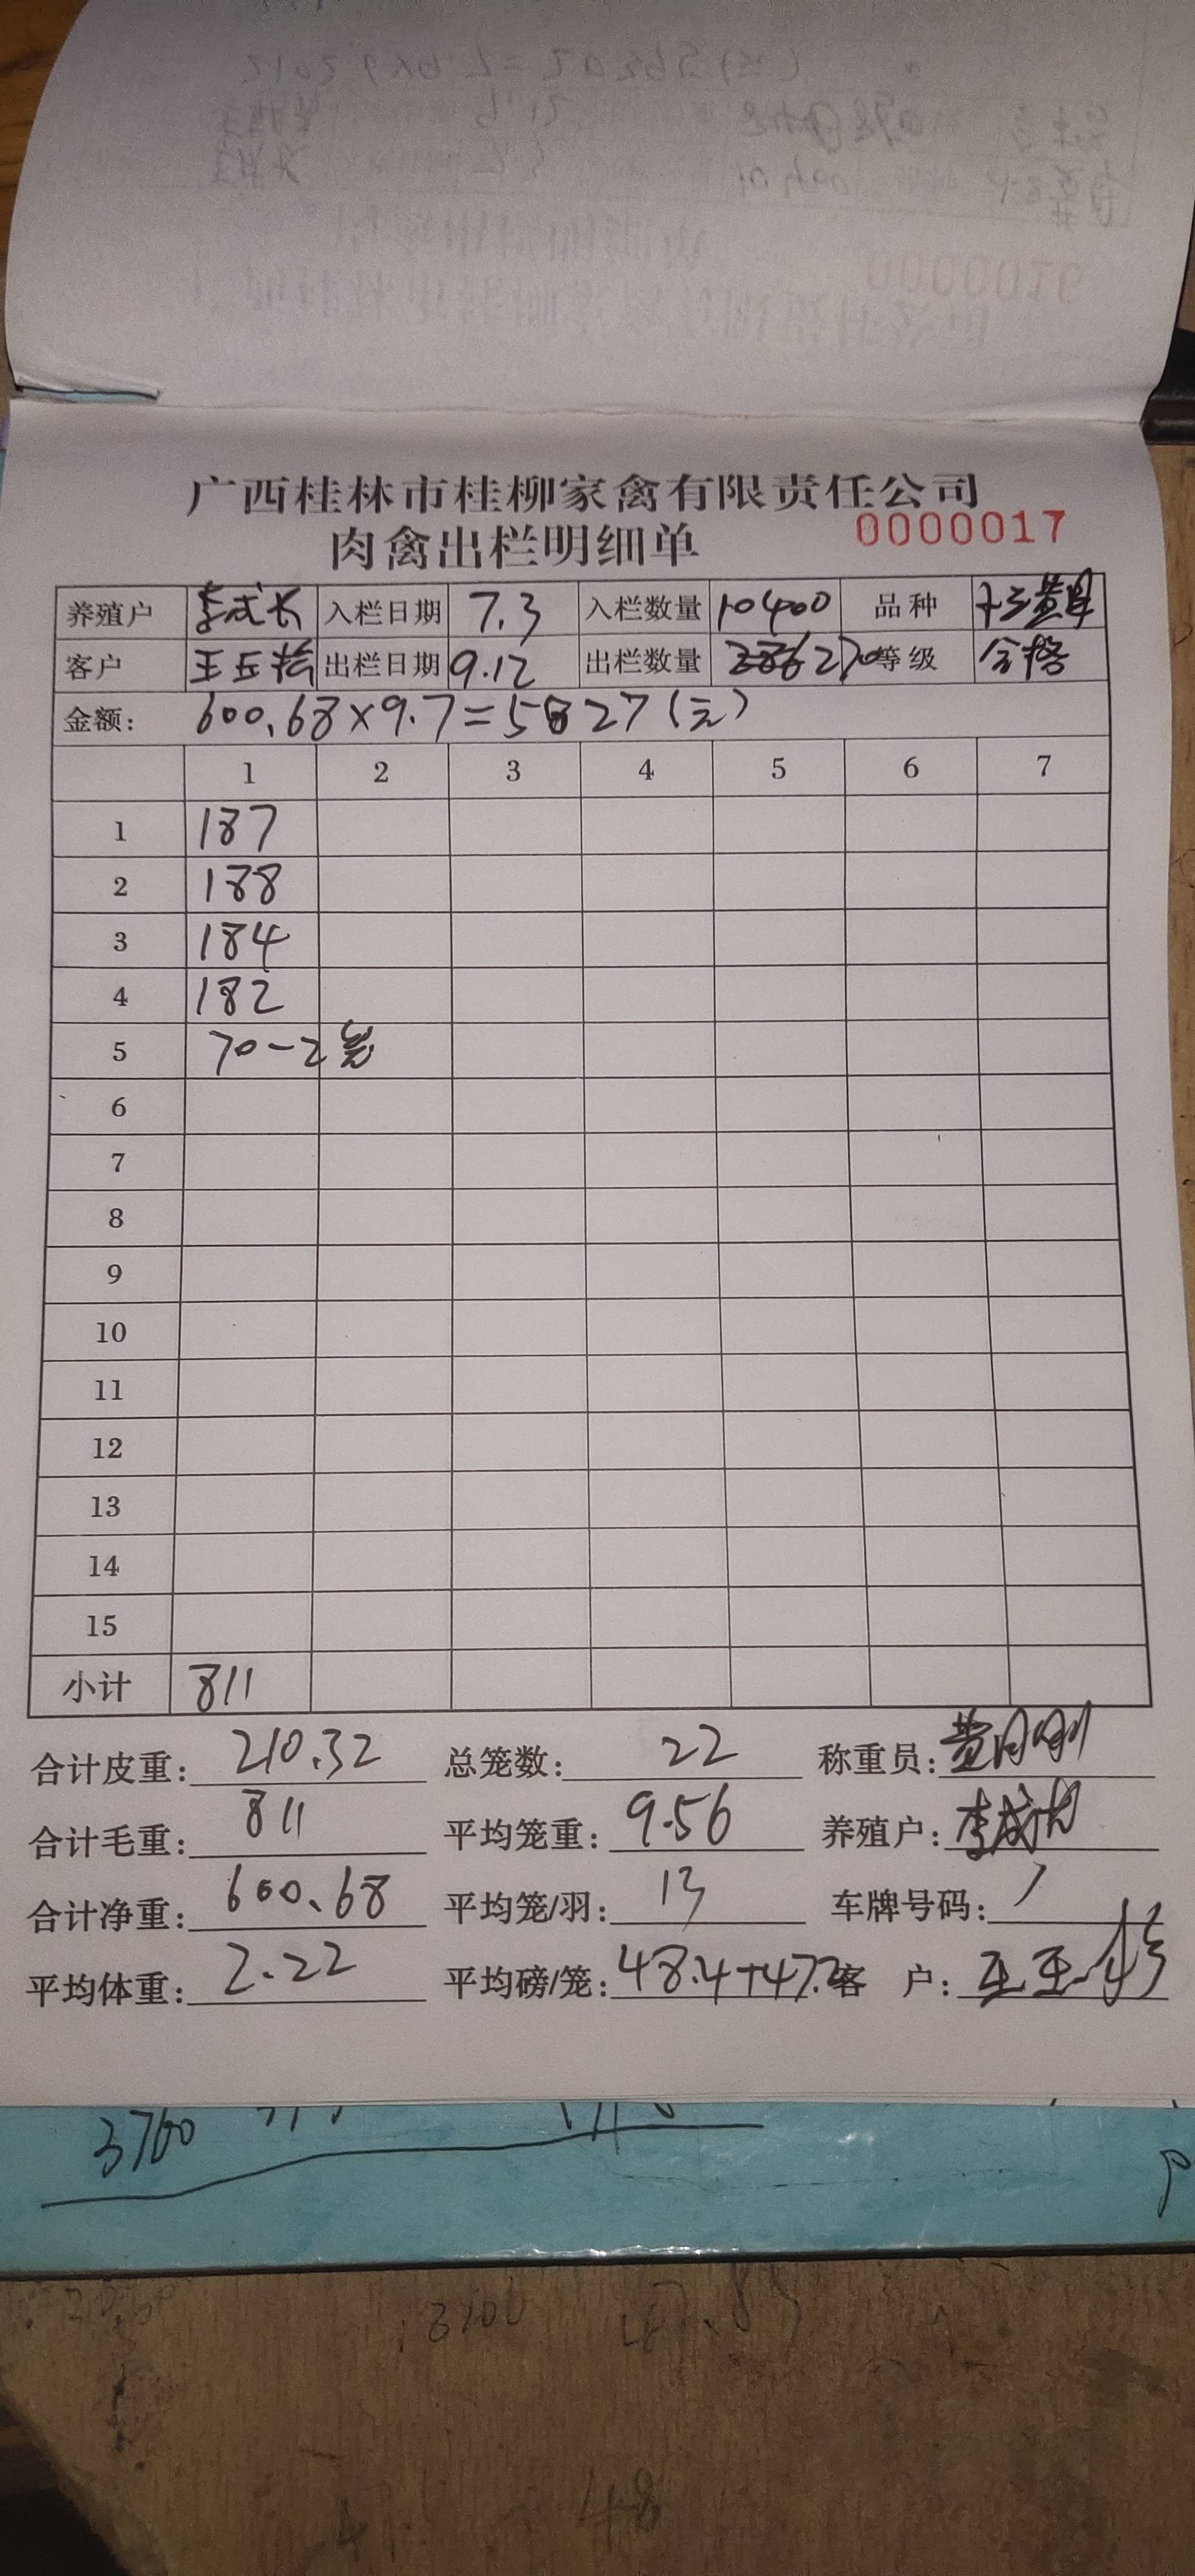 广西桂林市桂柳家禽有限责任公司
肉禽出栏明细单 0000017
养殖户 李成长 入栏日期 7.3 入栏数量 10400 品种
客户 出栏日期 9.12 出栏数量 270 等级 合格
金额: 600.68×9.7=5827(元)
1 2 3 4 5 6 7
1 187
2 188
3 184
4 182
5 70-2笼
6
7
8
9
10
11
12
13
14
15
小计 811
合计皮重: 210.32 总笼数: 22 称重员:
合计毛重: 811 平均笼重: 9.56 养殖户: 李成长
合计净重: 600.68 平均笼/羽: 13 车牌号码: /
平均体重: 2.22 平均磅/笼: 48.4+47.2 客 户:
3760
3200
48